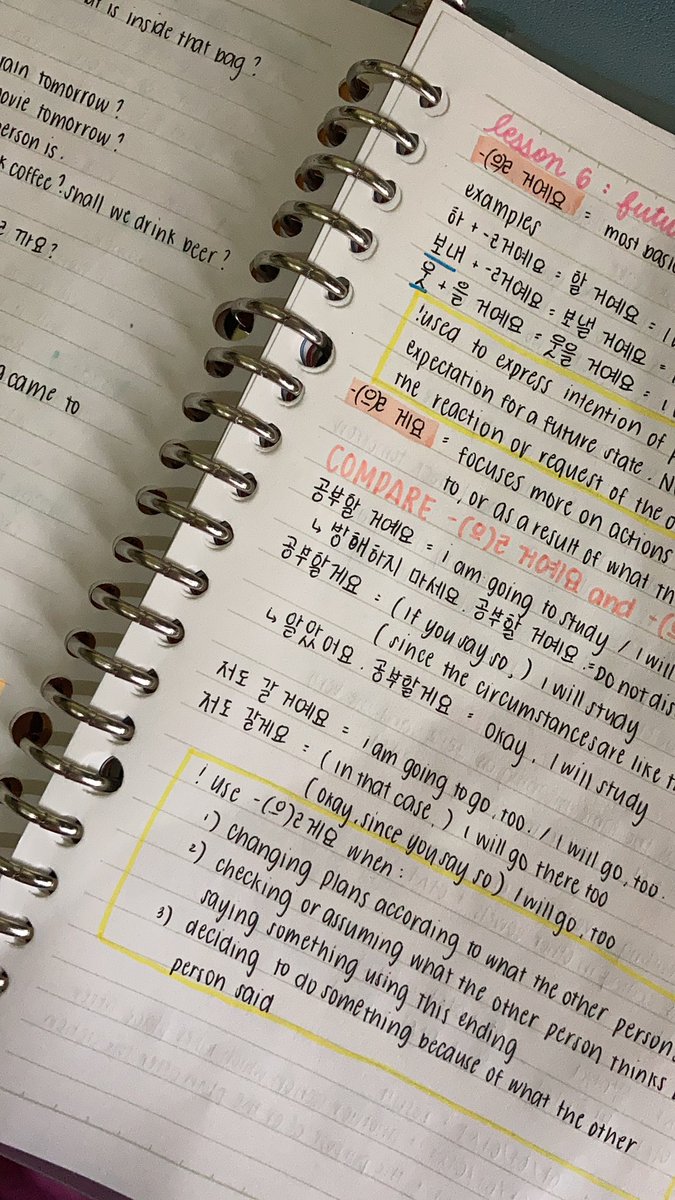 is inside that bag?
tomorrow?
tomorrow?
person is.
coffee? shall we drink beer?
까요?
came to
lesson 6 :
-(으)ㄹ 거예요 = most basic
examples
하 + -ㄹ거예요 = 할 거예요 =
보내 + -ㄹ거예요 = 보낼 거예요 =
웃 + 을 거예요 = 웃을 거예요 =
!used to express intention of
expectation for a future state.
the reaction or request of the
-(으)ㄹ 게요 = focuses more on actions
to, or as a result of what
COMPARE -(으)ㄹ 거예요 and
공부할 거예요 = i am going to study / I will
↳ 방해하지 마세요. 공부할 거예요. = DO not
공부할게요 : (if you say so,) I will study
(since the circumstances are like
↳ 알았어요. 공부할게요 = okay, I will study
저도 갈 거예요 = i am going to go, too. / I will go, too.
저도 갈게요 : (in that case,) I will go there too
(okay, since you say so) I will go, too
! use -(으)ㄹ게요 when:
1) changing plans according to what the other person
2) checking or assuming what the other person thinks
saying something using this ending
3) deciding to do something because of what the other
person said